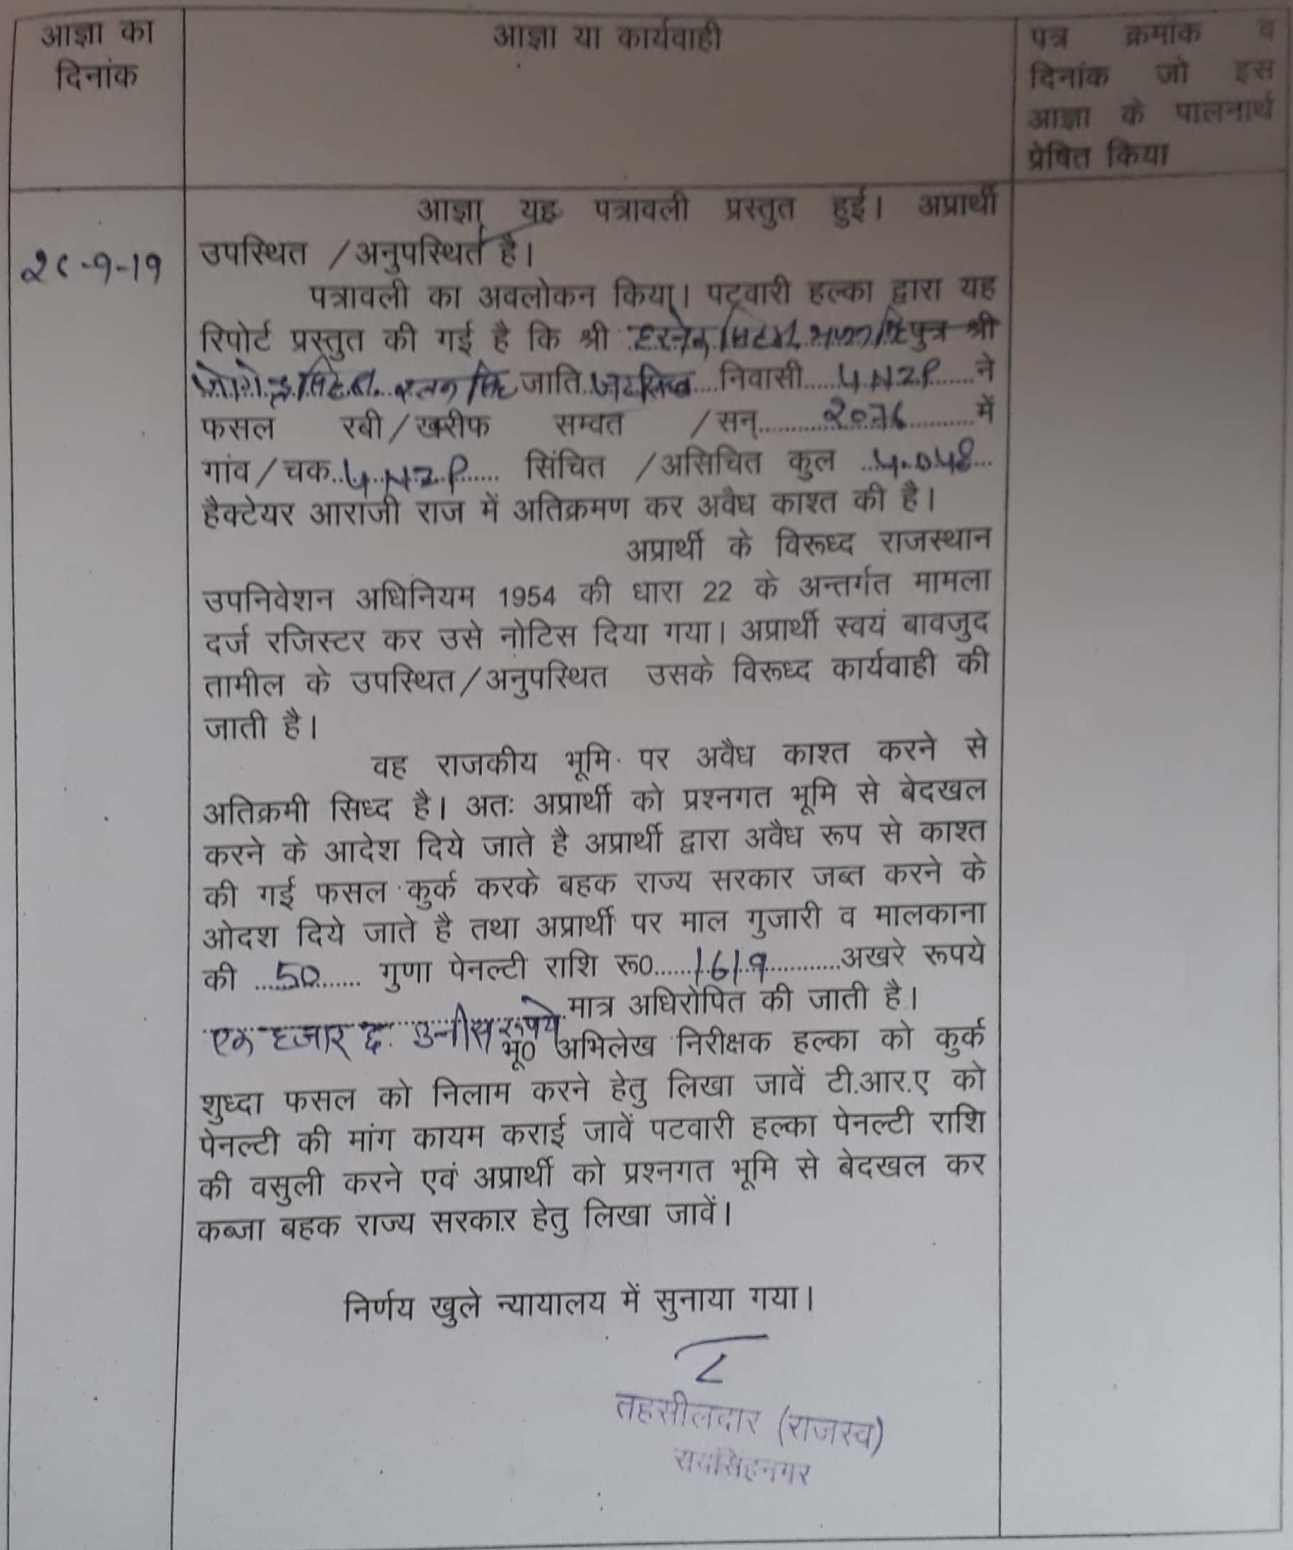 आज्ञा का
दिनांक
आज्ञा या कार्यवाही
पत्र क्रमांक व
दिनांक जो इस
आज्ञा के पालनार्थ
प्रेषित किया
आज्ञा यह पत्रावली प्रस्तुत हुई। अप्रार्थी
उपस्थित /अनुपस्थित है।
-9-19
पत्रावली का अवलोकन किया। पटवारी हल्का द्वारा यह
रिपोर्ट प्रस्तुत की गई है कि श्री पुत्र श्री
जाति जटसिख निवासी 4 NZP ने
फसल रबी/खरीफ सम्वत /सन् 2076 में
गांव/चक 4 NZP सिंचित /असिचित कुल 4.048
हैक्टेयर आराजी राज में अतिक्रमण कर अवैध काश्त की है।
अप्रार्थी के विरूध्द राजस्थान
उपनिवेशन अधिनियम 1954 की धारा 22 के अन्तर्गत मामला
दर्ज रजिस्टर कर उसे नोटिस दिया गया। अप्रार्थी स्वयं बावजुद
तामील के उपस्थित/अनुपस्थित उसके विरूध्द कार्यवाही की
जाती है।
वह राजकीय भूमि पर अवैध काश्त करने से
अतिक्रमी सिध्द है। अतः अप्रार्थी को प्रश्नगत भूमि से बेदखल
करने के आदेश दिये जाते है अप्रार्थी द्वारा अवैध रूप से काश्त
की गई फसल कुर्क करके बहक राज्य सरकार जब्त करने के
ओदश दिये जाते है तथा अप्रार्थी पर माल गुजारी व मालकाना
की 50 गुणा पेनल्टी राशि रू0 1619 अखरे रूपये
एक हजार छः उन्नीस रूपये मात्र अधिरोपित की जाती है।
भू0 अभिलेख निरीक्षक हल्का को कुर्क
शुध्दा फसल को निलाम करने हेतु लिखा जावें टी.आर.ए को
पेनल्टी की मांग कायम कराई जावें पटवारी हल्का पेनल्टी राशि
की वसुली करने एवं अप्रार्थी को प्रश्नगत भूमि से बेदखल कर
कब्जा बहक राज्य सरकार हेतु लिखा जावें।
निर्णय खुले न्यायालय में सुनाया गया।
तहसीलदार (राजस्व)
रायसिंहनगर